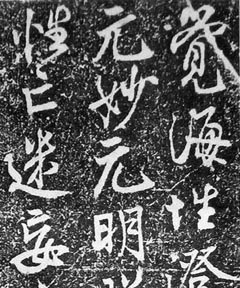 覺海性澄
元妙元明
性亡迷妄